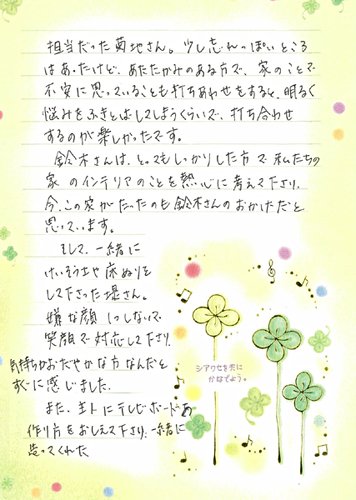 担当だった菊地さん。少し忘れっぽいところ
はあったけど、あたたかみのある方で、家のことで
不安に思っていることも打ちあわせをすると、明るく
悩みをふきとばしてしまうくらいで、打ち合わせ
するのが楽しかったです。
鈴木さんは、とってもしっかりした方で私たちの
家のインテリアのことを熱心に考えて下さり、
今、この家がたったのも鈴木さんのおかげだと
思っています。
そして、一緒に
けいそう土や床ぬりを
して下さった堤さん。
嫌な顔1つしないで、
笑顔で対応して下さり、
気持ちがおだやかな方なんだと
すぐに感じました。
また、主人にテレビボードの
作り方をおしえて下さり、一緒に
造ってくれた
シアワセを共に
かなでよう。